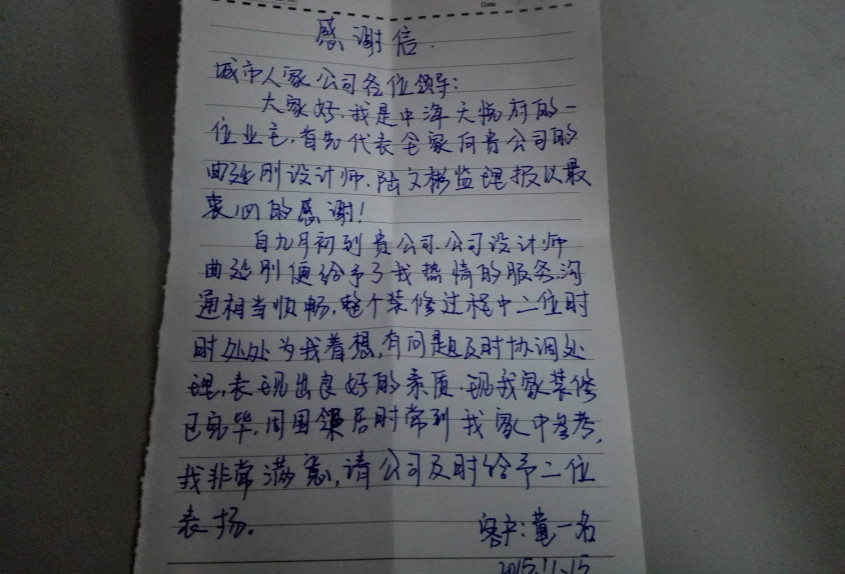 Date
感谢信.
城市人家公司各位领导:
大家好.我是中海天悦府的一
位业主.首先代表全家向贵公司的
曲延刚设计师.陆文彬监理报以最
衷心的感谢!
自九月初到贵公司.公司设计师
曲延刚便给予了我热情的服务.沟
通相当顺畅.整个装修过程中二位时
时处处为我着想,有问题及时协调处
理,表现出良好的素质.现我家装修
已完毕.周围邻居时常到我家中参考,
我非常满意,请公司及时给予二位
表扬。
客户:董一名
2015.11.15